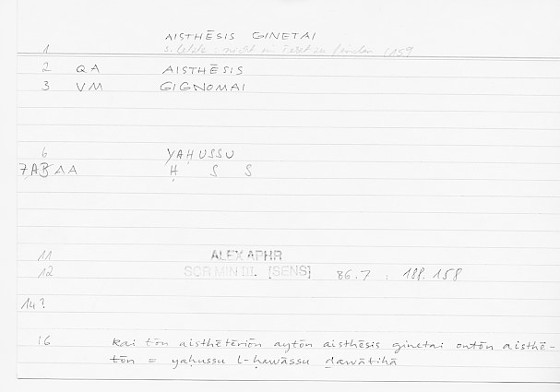 AISTHĒSIS GINETAI
1
2 QA AISTHĒSIS
3 VM GIGNOMAI
6 YAḤUSSU
7 AB AA Ḥ S S
11 ALEX APHR
12 SCR MIN III. (SENS) 86.7 , 188.158
14?
16 kai tōn aisthētēriōn aytōn aisthēsis ginetai ontōn aisthē-
tōn = yaḥussu l-ḥawāssu ḏawātihā